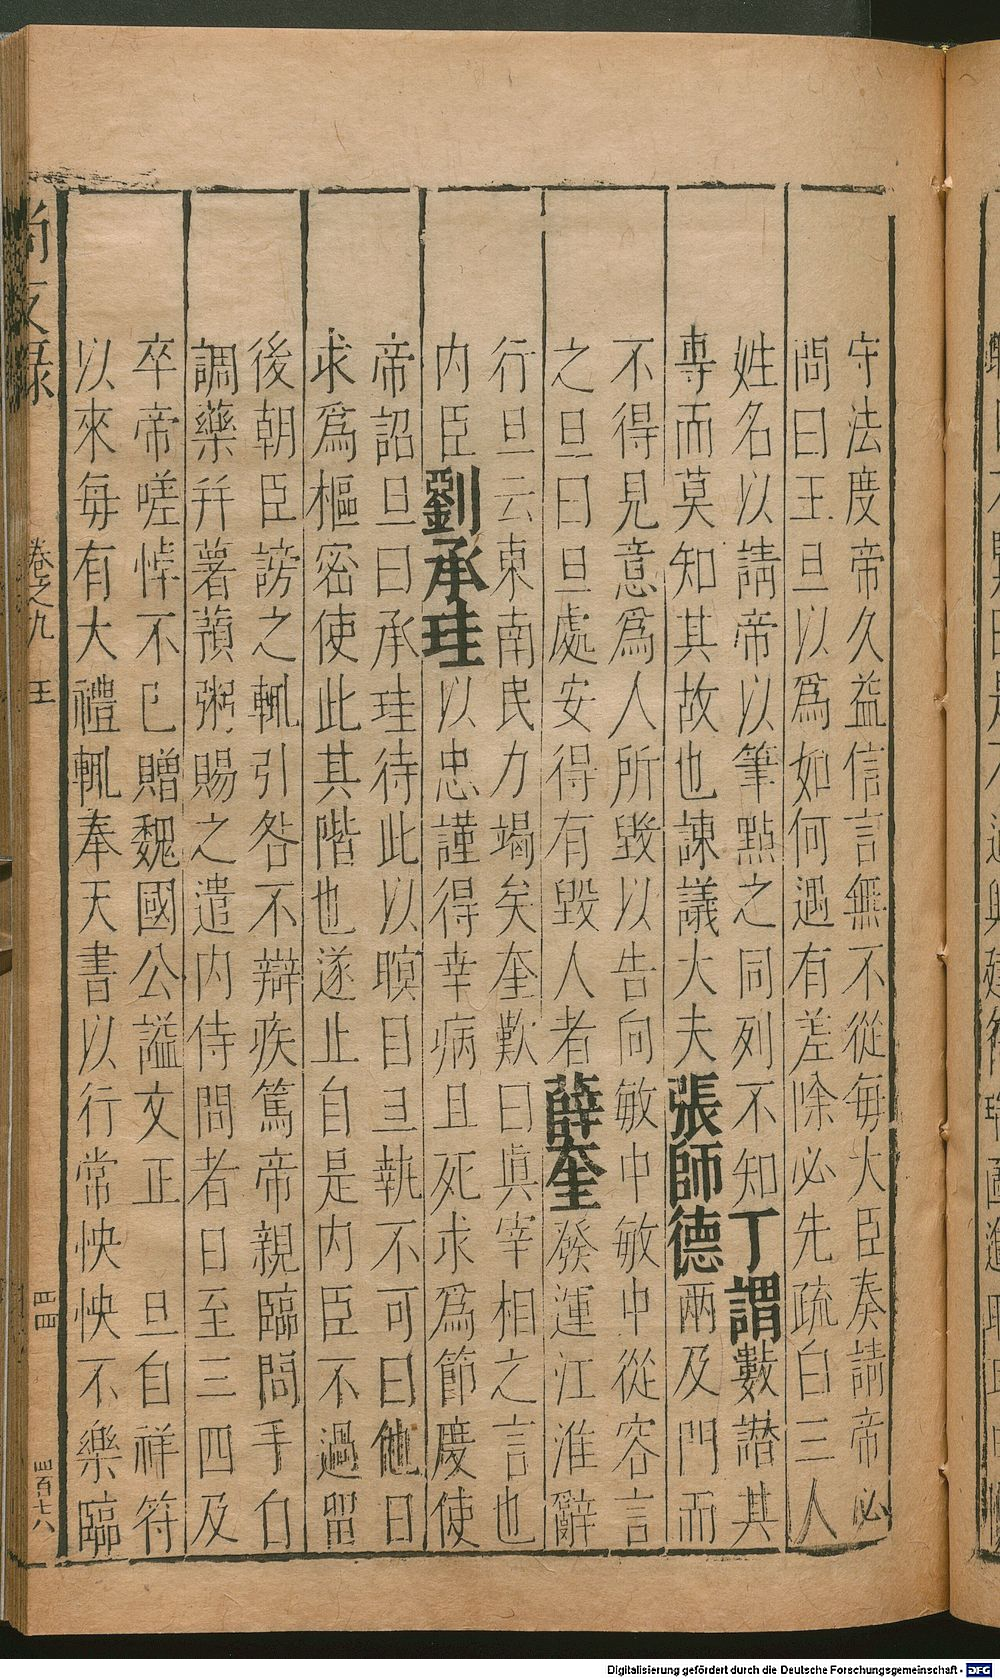 守法度帝久益信言無不從每大臣奏請帝必
問曰王旦以爲如何遇有差除必先疏白三人
姓名以請帝以筆點之同列不知丁謂數譖其
專而莫知其故也諫議大夫張師德兩及門而
不得見意爲人所毀以告向敏中敏中從容言
之旦曰旦處安得有毀人者薛奎發運江淮辭
行旦云東南民力竭矣奎歎曰眞宰相之言也
内臣劉承珪以忠謹得幸病且死求爲節度使
帝詔旦曰承珪待此以瞑目旦執不可曰他日
求爲樞密使此其階也遂止自是内臣不過留
後朝臣謗之輒引咎不辯疾篤帝親臨問手自
調藥并薯蕷粥賜之遣内侍問者日至三四及
卒帝嗟悼不已贈魏國公謚文正 旦自祥符
以來每有大禮輒奉天書以行常怏怏不樂臨
尚友錄 卷之九 王 四四 三百十八